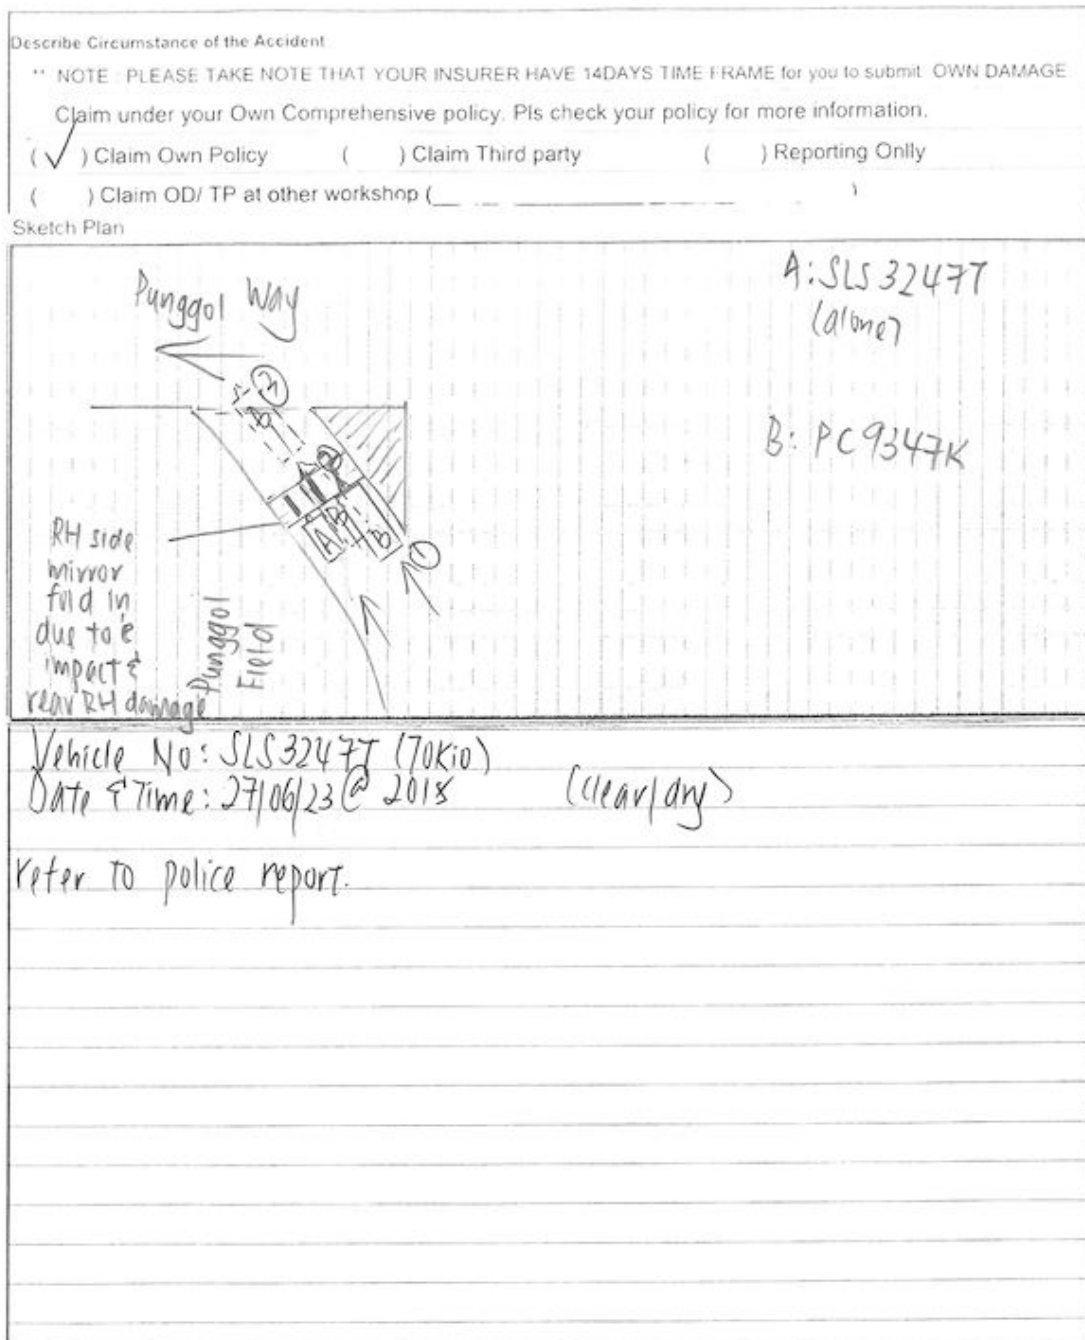 Describe Circumstance of the Accident
** NOTE : PLEASE TAKE NOTE THAT YOUR INSURER HAVE 14DAYS TIME FRAME for you to submit OWN DAMAGE
Claim under your Own Comprehensive policy. Pls check your policy for more information.
(✓) Claim Own Policy ( ) Claim Third party ( ) Reporting Onlly
( ) Claim OD/ TP at other workshop (____________)
Sketch Plan
A: SLS3247T
(alone)
Punggol Way
B: PC9347K
3
B
2
A
B
B
1
RH side
mirror
fold in
due to e
impact &
rear RH damage
Punggol
Field
Vehicle No: SLS3247T (TOKio)
Date & Time: 27/06/23 @ (clear/dry)
refer to police report.